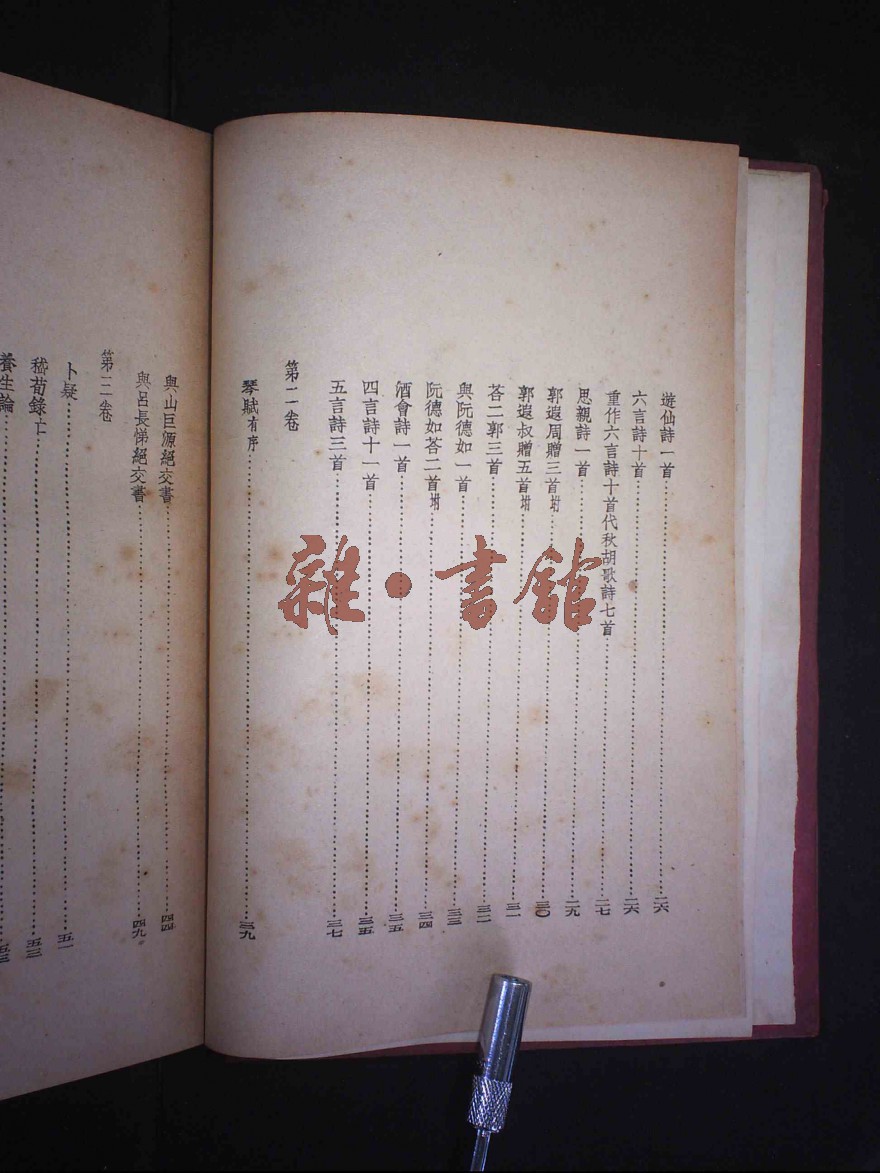 遊仙詩一首 二六
六言詩十首 二六
重作六言詩十首代秋胡歌詩七首 二七
思親詩一首 二九
郭遐周贈三首附 三〇
郭遐叔贈五首附 三一
荅二郭三首 三二
與阮德如一首 三三
阮德如荅二首附 三四
酒會詩一首 三五
四言詩十一首 三五
五言詩三首 三七
第二卷
琴賦有序 三九
與山巨源絕交書 四四
與呂長悌絕交書 四九
第三卷
卜疑 五一
嵇荀錄亡 五三
養生論 五三
雜·書館